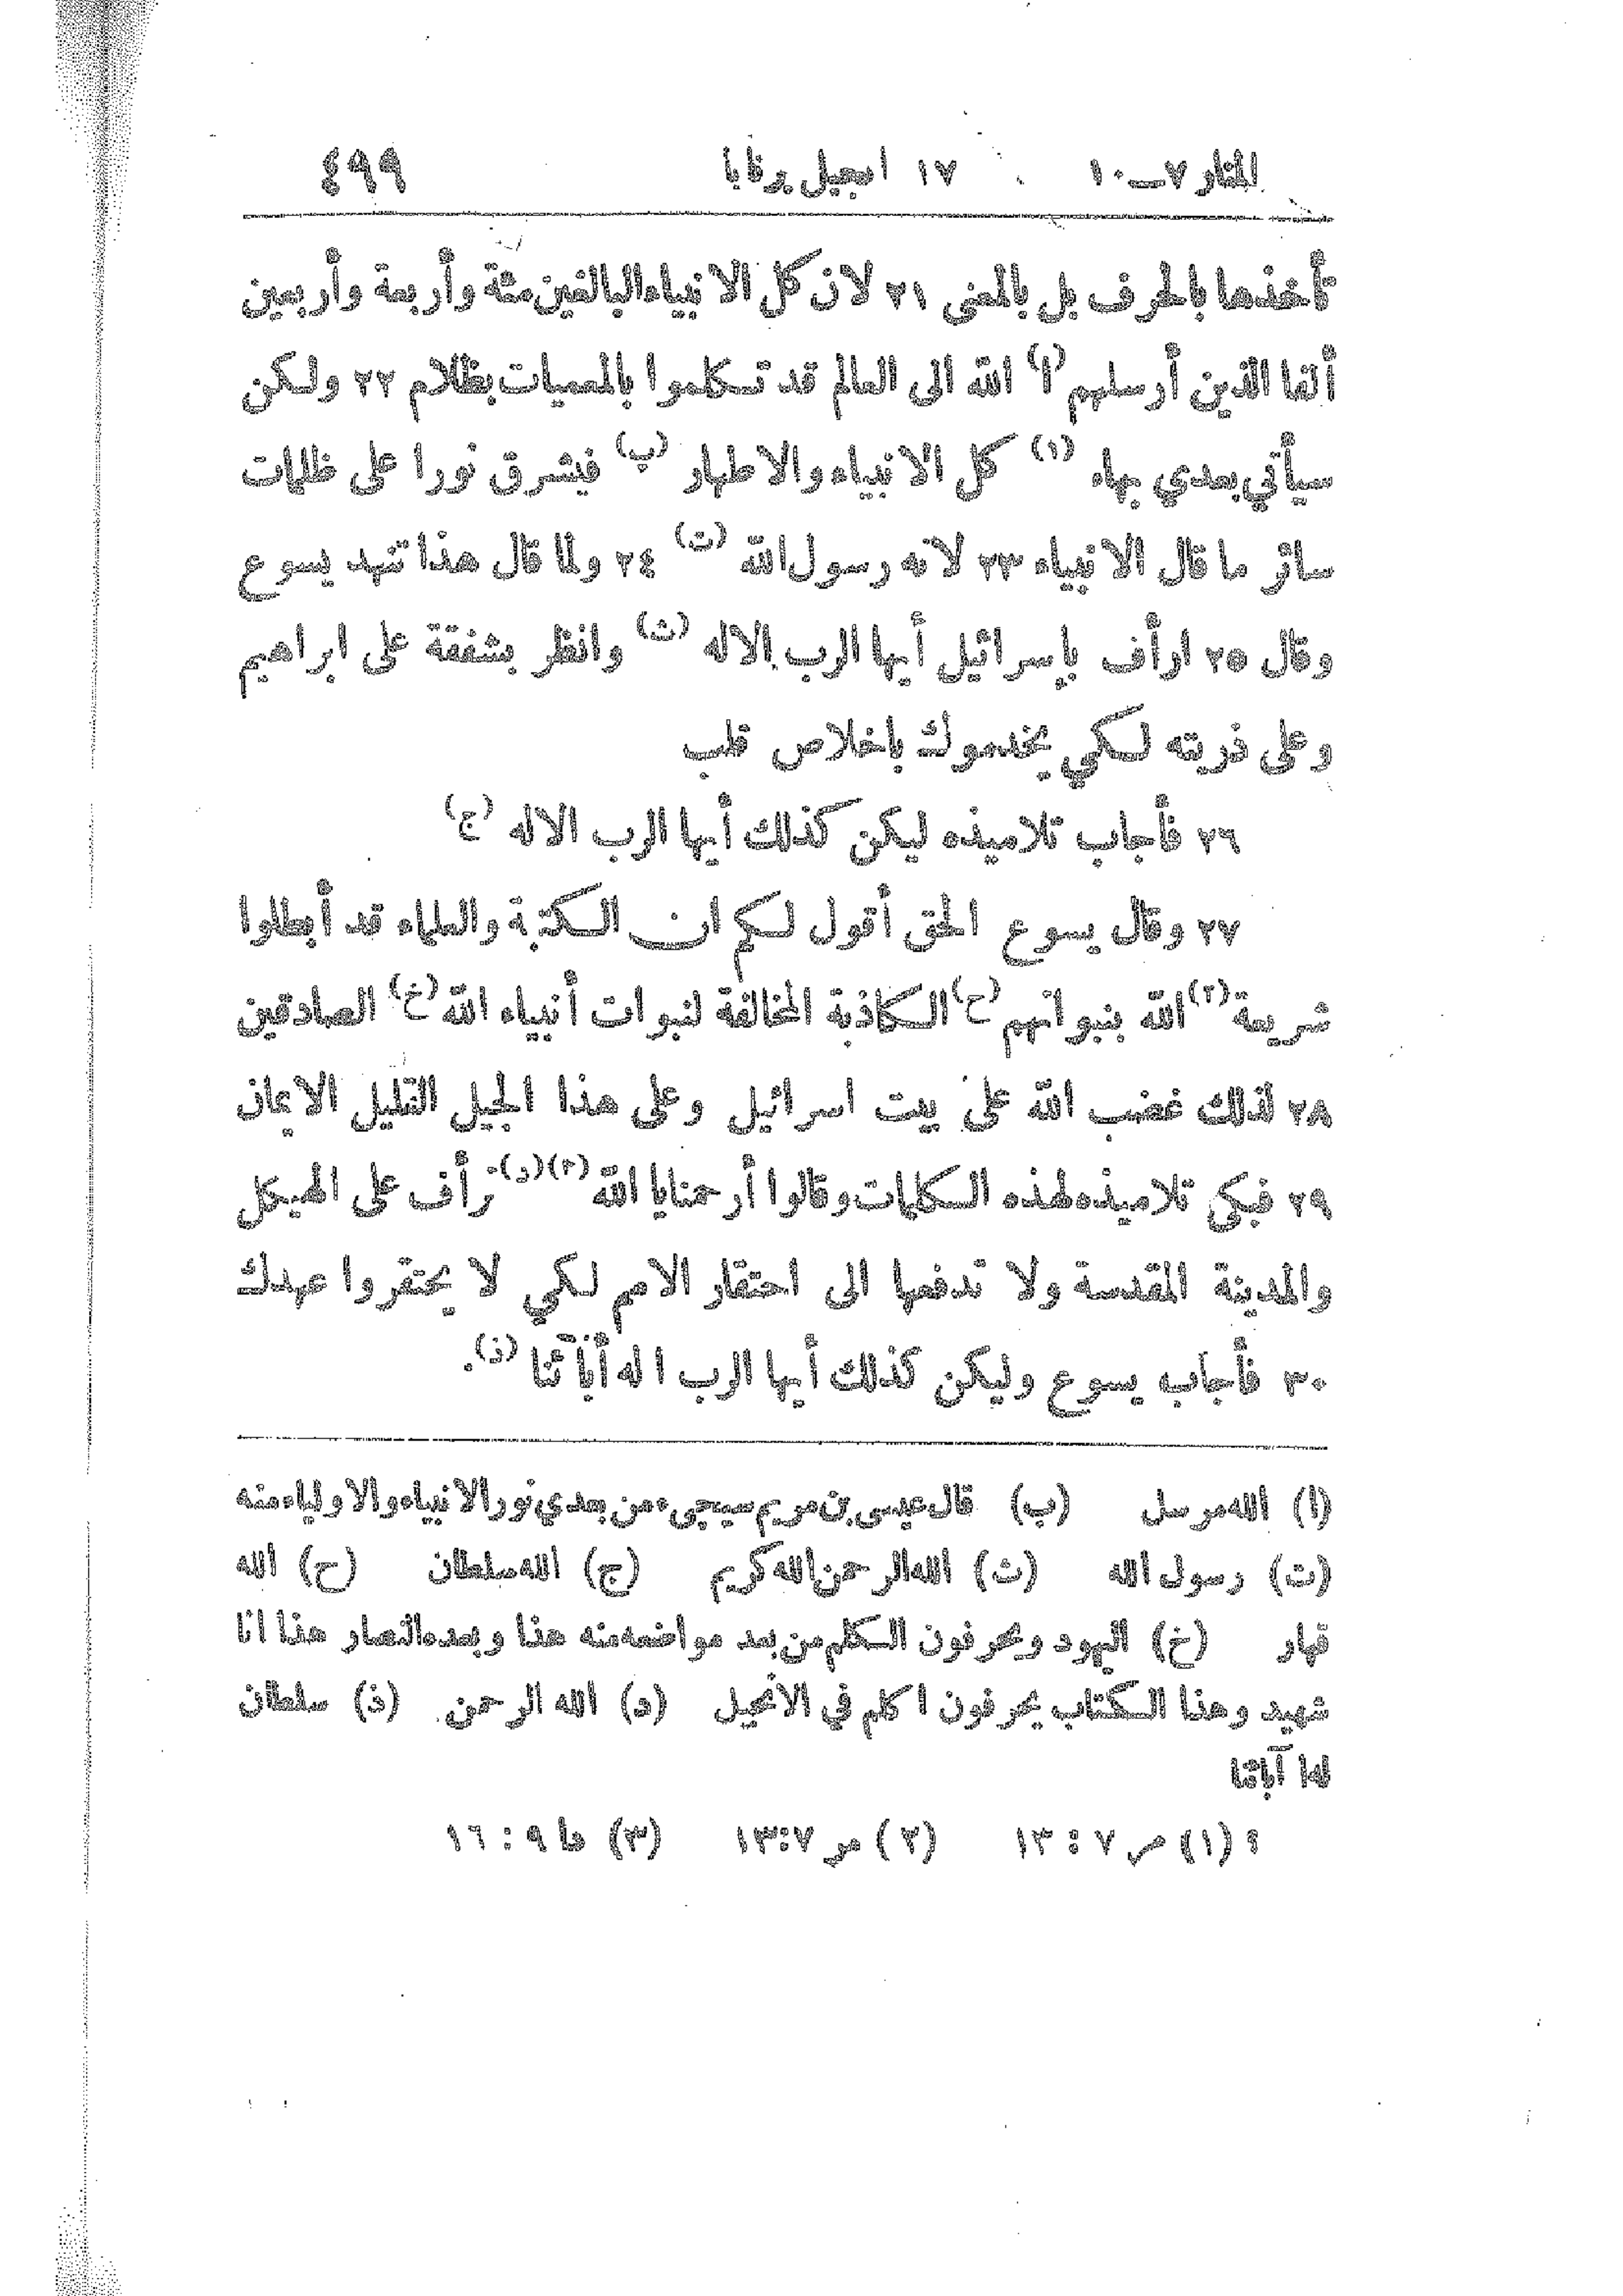 المنار ٧ــ١٠ ١٧ انجيل برنابا ٤٩٩
تأخذها بالحرف بل بالمعنى ٢١ لان كل الانبياء البالغين مئة وأربعة وأربعين
ألفا الذين أرسلهم (ا) الله الى العالم قد تكلموا بالمعميات بظلام ٢٢ ولكن
سيأتي بعدي بهاء (١) كل الانبياء والاطهار (ب) فيشرق نورا على ظلمات
سائر ما قال الانبياء ٢٣ لانه رسول الله (ت) ٢٤ ولما قال هذا تنهد يسوع
وقال ٢٥ ارأف بإسرائيل أيها الرب الاله (ث) وانظر بشفقة على ابراهيم
وعلى ذريته لكي يخدموك باخلاص قلب
٢٦ فأجاب تلاميذه ليكن كذلك أيها الرب الاله (ج)
٢٧ وقال يسوع الحق أقول لكم ان الكتبة والعلماء قد أبطلوا
شريعة (٢) الله بنبواتهم (ح) الكاذبة المخالفة لنبوات أنبياء الله (خ) الصادقين
٢٨ لذلك غضب الله على بيت اسرائيل وعلى هذا الجيل القليل الايمان
٢٩ فبكى تلاميذه لهذه الكلمات وقالوا أرحمنا يا الله (٣) (د) رأف على الهيكل
والمدينة المقدسة ولا تدفعها الى احتقار الامم لكي لا يحتقروا عهدك
٣٠ فأجاب يسوع وليكن كذلك أيها الرب اله أبآئنا (ذ).
(ا) الله مرسل (ب) قال عيسى بن مريم سيجيء من بعدي نور الانبياء والاولياء منه
(ت) رسول الله (ث) الله الرحمن الله كريم (ج) الله سلطان (ح) الله
قهار (خ) اليهود ويحرفون الكلم من بعد مواضعه منه هذا وبعده النصار هذا انا
شهيد وهذا الكتاب يحرفون اكلم في الانجيل (د) الله الرحمن (ذ) سلطان
لها آبائنا
(١) ص ٧ : ١٣ (٢) مر ٧:١٣ (٣) دا ٩ : ١٦